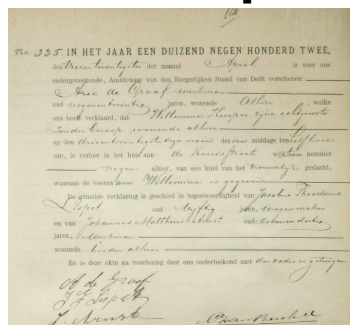 No. 225 IN HET JAAR EEN DUIZEND NEGEN HONDERD TWEE,
den vierentwintigsten der maand April is voor ons
ondergeteekende, Ambtenaar van den Burgerlijken Stand van Delft verschenen
Arie de Graaf werkman
oud negenentwintig jaren, wonende Alhier, welke
ons heeft verklaard, dat Willemina Kuiper zijne echtgenoote
zonder beroep wonende alhier
op den drieentwintigsten dezer maand des voor middags ten half twee
ure, is verlost in het huis aan de Kruisstraat wijk nummer
negen alhier, van een kind van het vrouwelijk geslacht,
waaraan de voornaam Willemina is gegeven
De gemelde verklaring is geschied in tegenwoordigheid van Jacobus Theodorus
Lispet oud vijftig jaren, wagenmaker
en van Johannes Mattheus oud
jaren, Werkman
wonende beiden alhier
En is deze akte na voorlezing door ons onderteekend met den vader en getuigen
A de Graaf
J T Lispet
J.